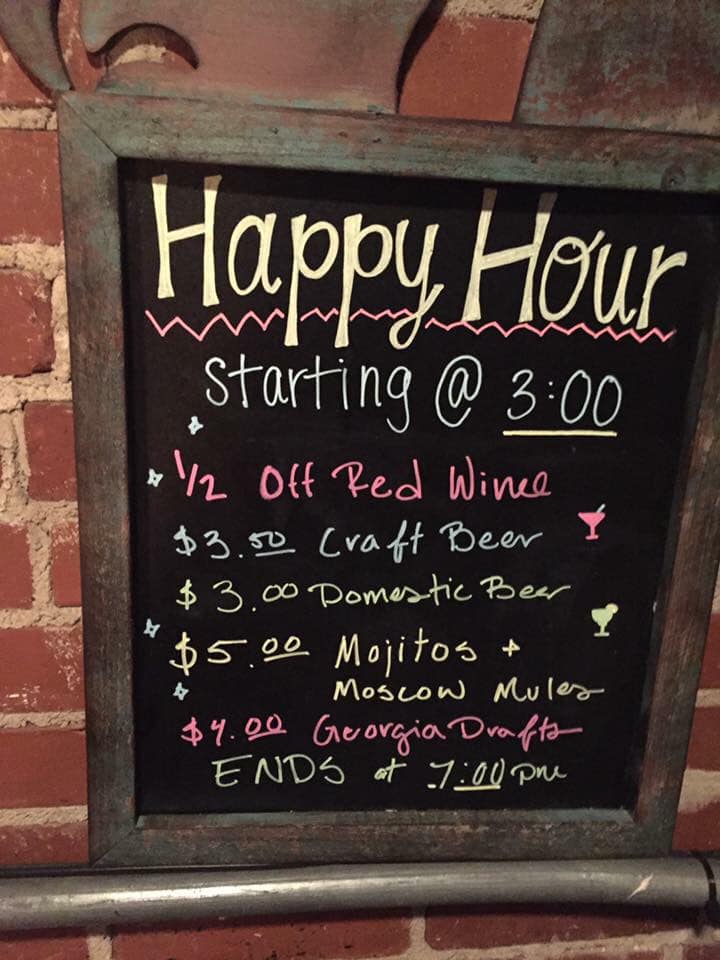 Happy Hour
starting @ 3:00
1/2 Off Red Wine
$3.50 Craft Beer
$3.00 Domestic Beer
$5.00 Mojitos +
Moscow Mules
$4.00 Georgia Drafts
ENDS at 7:00 pm